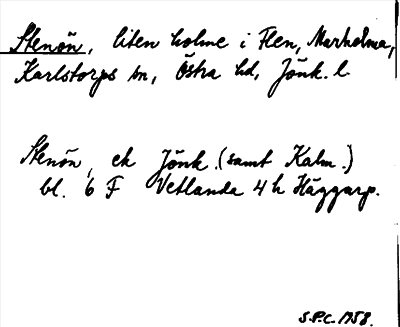 Stenön, liten holme i Flen, Markelma,
Karlstorps sn, Östra hd, Jönk. l.
Stenön, ek Jönk. (samt Kalm.)
bl. 6 F Vetlanda 4 h Häggarp.
S.P.C. 1958.